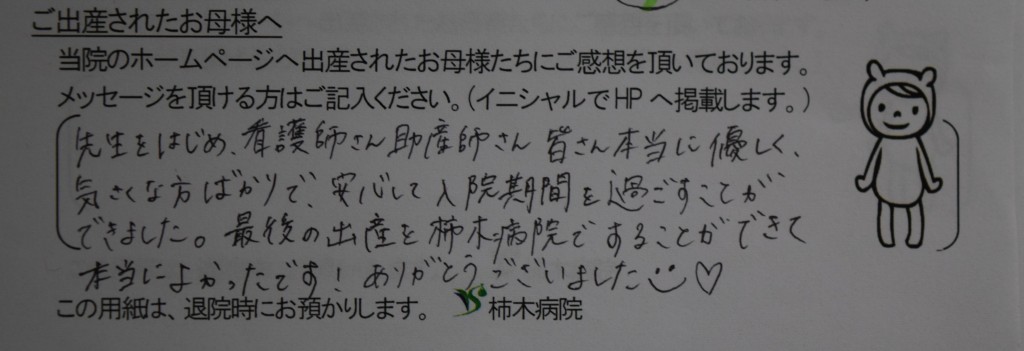 ご出産されたお母様へ
当院のホームページへ出産されたお母様たちにご感想を頂いております。
メッセージを頂ける方はご記入ください。(イニシャルでHPへ掲載します。)
先生をはじめ、看護師さん助産師さん 皆さん本当に優しく、
気さくな方ばかりで、安心して入院期間を過ごすことが
できました。最後の出産を柿木病院ですることができて
本当によかったです！ありがとうございました♡
この用紙は、退院時にお預かりします。 柿木病院